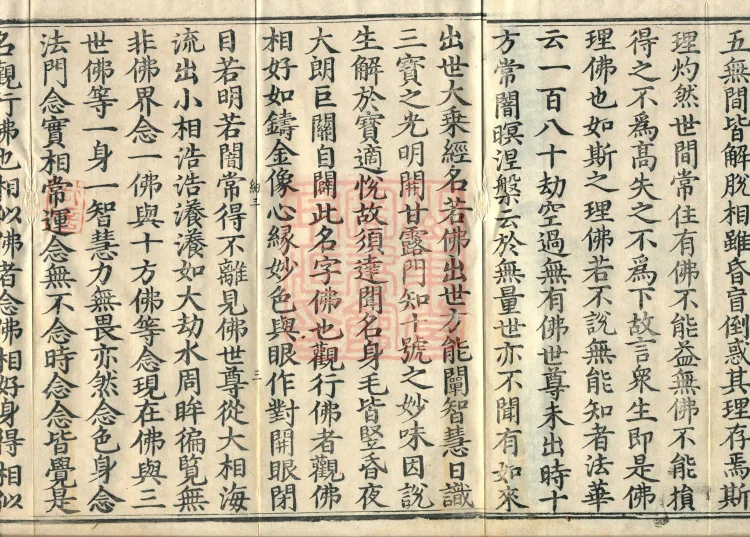 五無間皆解脫相雖昏盲倒惑其理存焉斯
理灼然世間常住有佛不能益無佛不能損
得之不爲高失之不爲下故言衆生即是佛
理佛也如斯之理佛若不說無能知者法華
云一百八十劫空過無有佛世尊未出時十
方常闇暝涅槃云於無量世亦不聞有如來
出世大乗經名若佛出世方能闡智慧日識
三寳之光明開甘露門知十號之妙味因說
生解於寳適恱故須達聞名身毛皆竪昏夜
大朗巨關自闢此名字佛也觀行佛者觀佛
相好如鑄金像心縁妙色與眼作對開眼閉
目若明若闇常得不離見佛世尊從大相海
流出小相浩浩瀁瀁如大劫水周眸徧覧無
非佛界念一佛與十方佛等念現在佛與三
世佛等一身一智慧力無畏亦然念色身念
法門念實相常運念無不念時念念皆覺是
名觀行佛也相似佛者念佛相好身得相似
三